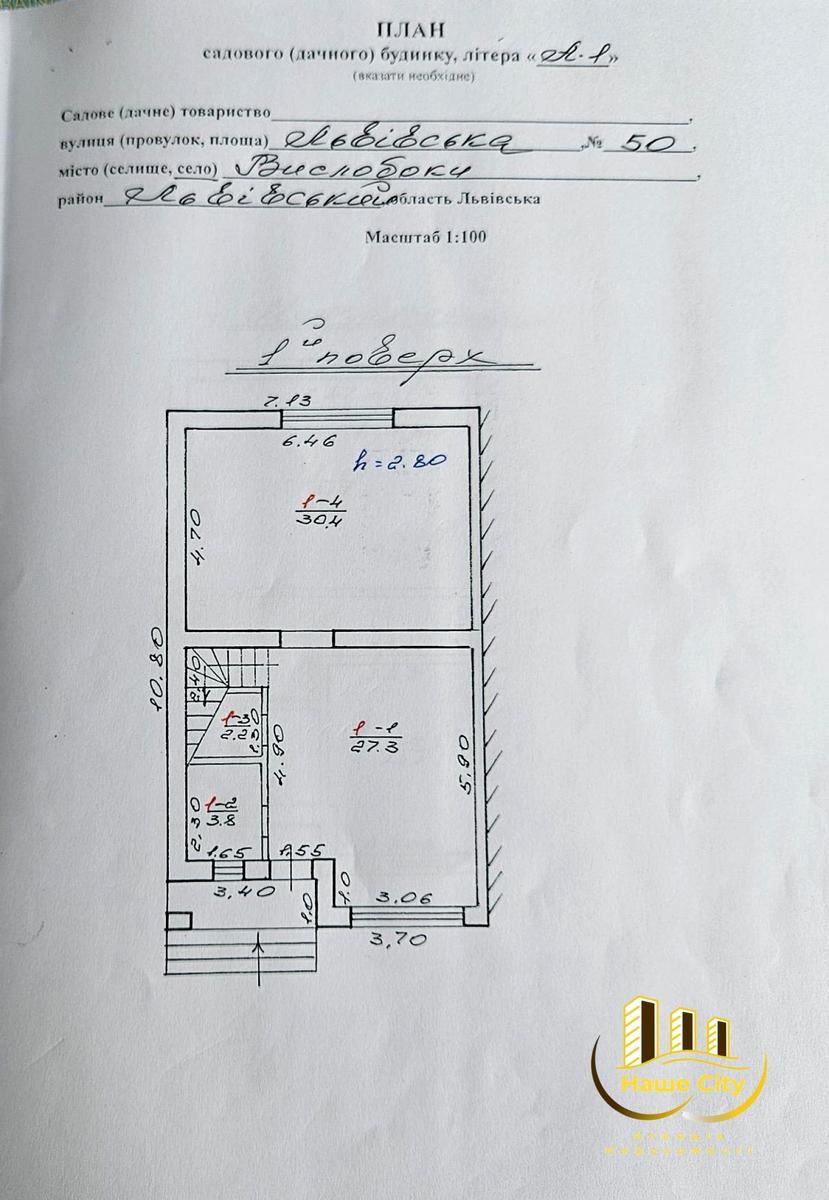 ПЛАН
садового (дачного) будинку, літера «А-1»
(вказати необхідне)
Садове (дачне) товариство
вулиця (провулок, площа) Львівська №50
місто (селище, село) Вислобоки
район Львівський область Львівська
Масштаб 1:100
1й поверх
7.13
6.46
h=2.80
1-4
30.4
4.70
10.80
2.40
1-3
2.2
1-1
27.3
4.90
5.90
1-2
3.8
2.30
1.65
1.55
3,40
1.0
1.0
3.06
3,70
Наше City
агенція
нерухомості